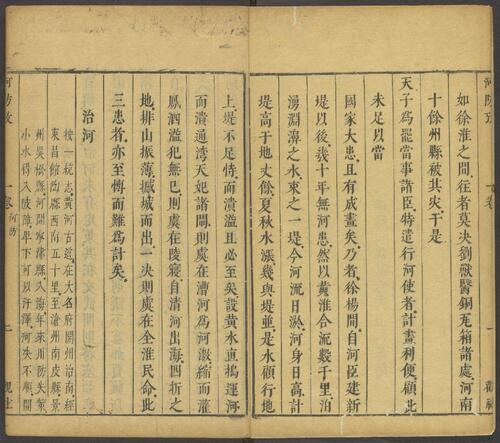 如徐淮之間往者莫決劉獸醫銅瓦箱諸處河南
十餘州縣被其災于是
天子為罷當事諸臣特遣行河使者計畫利便顧此
未足以當
國家大患且有成畫矣乃者徐楊間自河臣建新
堤以後幾十年無河患然以黃淮合流數千里泊
湧淵漳之水束之一堤今河流日淤河身日高計
堤高于地丈餘夏秋水漲幾與堤並是水顧行地
上堤不足恃而潰溢且必至矣設黃水直搗運河
而潰通湾天妃諸閘則虞在漕河為河激縮而灌
鳳泗溢犯無已則虞在陵寢自清河出海四折之
地排山振薄撼城而出一決則虞在全淮民命此
三患者亦至慱而難為計矣
治河
按一統志黃河古道在大名府開州治南經
東昌館陶縣西南五十里至滄州南皮縣景
州吳橋縣河間寧津縣入海年來川防失策
小水得入陂障卑下可以汙澤河決不順開
河防攷
卷
河防
一